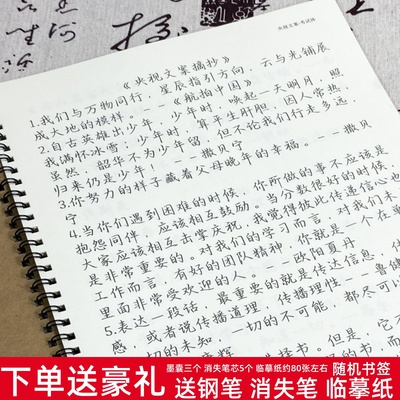 央视文案·考试体
《央视文案摘抄》
1.我们与万物同行，星辰指引方向，云与光铺展
成大地的模样。--《航拍中国》
2.自古英雄出少年，少年时，唤起一天明月，照
我满怀冰雪；少年时，算平生肝胆，因人常热，
虽然，韶华不为少年留，但不论我们行走多远，
归来仍是少年！--撒贝宁
3.你努力的样子藏着父母晚年的幸福。--撒贝
宁
4.当你们遇到困难的时候，你所做的事不应该是
抱怨同伴，应该相互鼓励。当分数很好的时候，
大家应该相互击掌庆祝，我觉得彼此传递信心也
是非常重要的。对我们的学习而言，对我们未
工作而言，有好的团队精神，你就是一个在单
里面非常受欢迎的人。--欧阳夏丹
5.表达一段话，最重要的就是传达信息，传
感，或者说传播道理，传播理性--鲁健
一切的未知，一切的不可能，都尽可以
下单送豪礼
墨囊三个 消失笔芯5个 临摹纸约80张左右 随机书签
送钢笔 消失笔 临摹纸